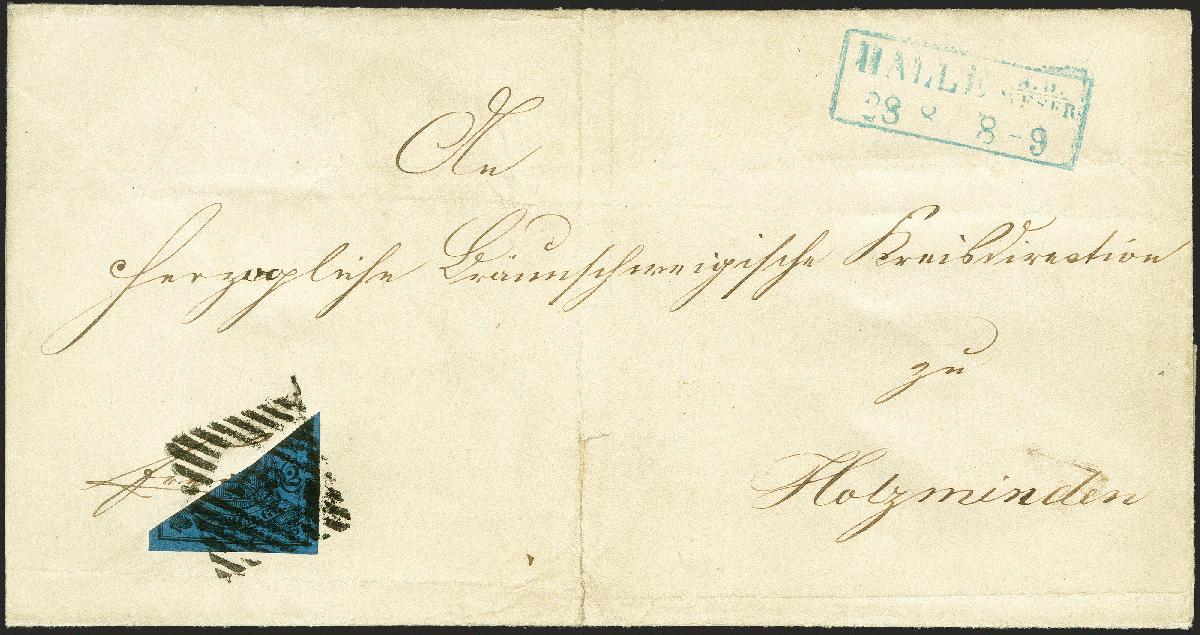 HALLE a. d. WESER.
28 8 8-9
An
Herzogliche Braunschweigische Kreisdirection
zu
Holzminden
2